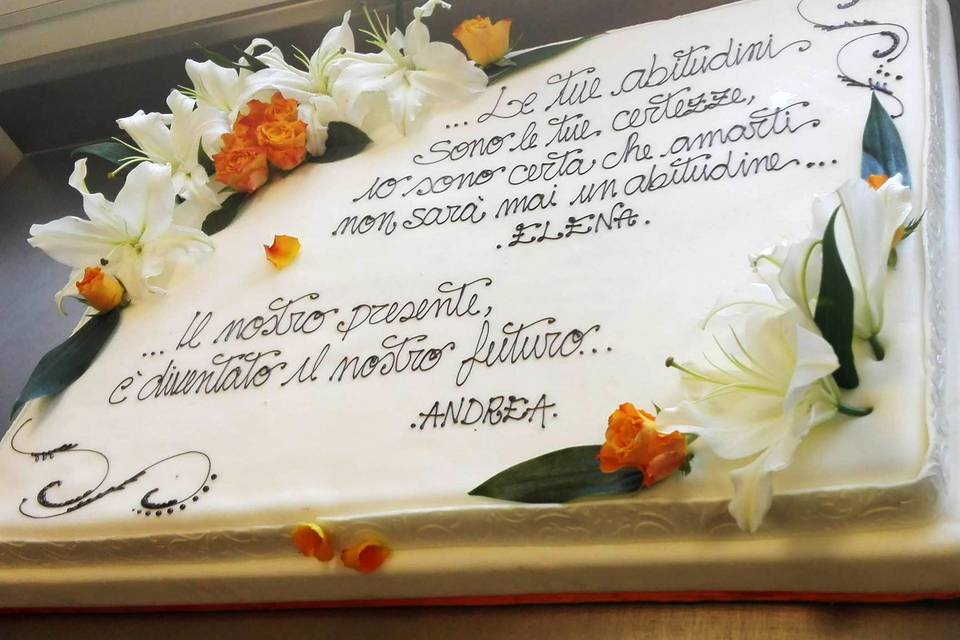 ... Le tue abitudini
sono le tue certezze,
io sono certa che amarti
non sarà mai un abitudine ...
.ELENA.
... Il nostro presente,
è diventato il nostro futuro...
.ANDREA.